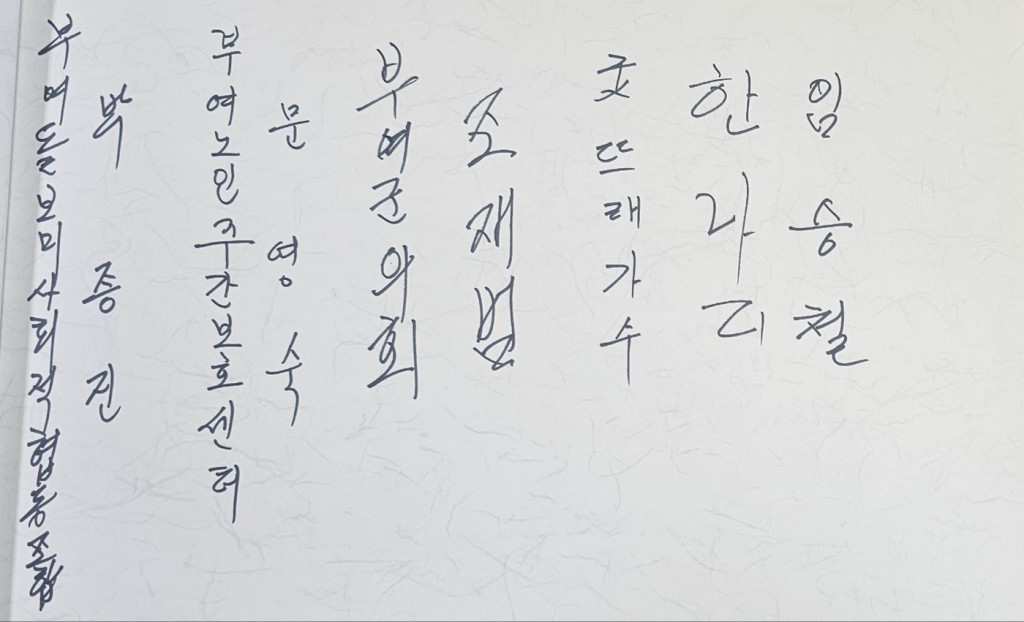 임승철
한나디
굿뜨래가수
조재범
부여군의회
문영숙
부여노인주간보호센터
박종진
부여돌보미사회적협동조합